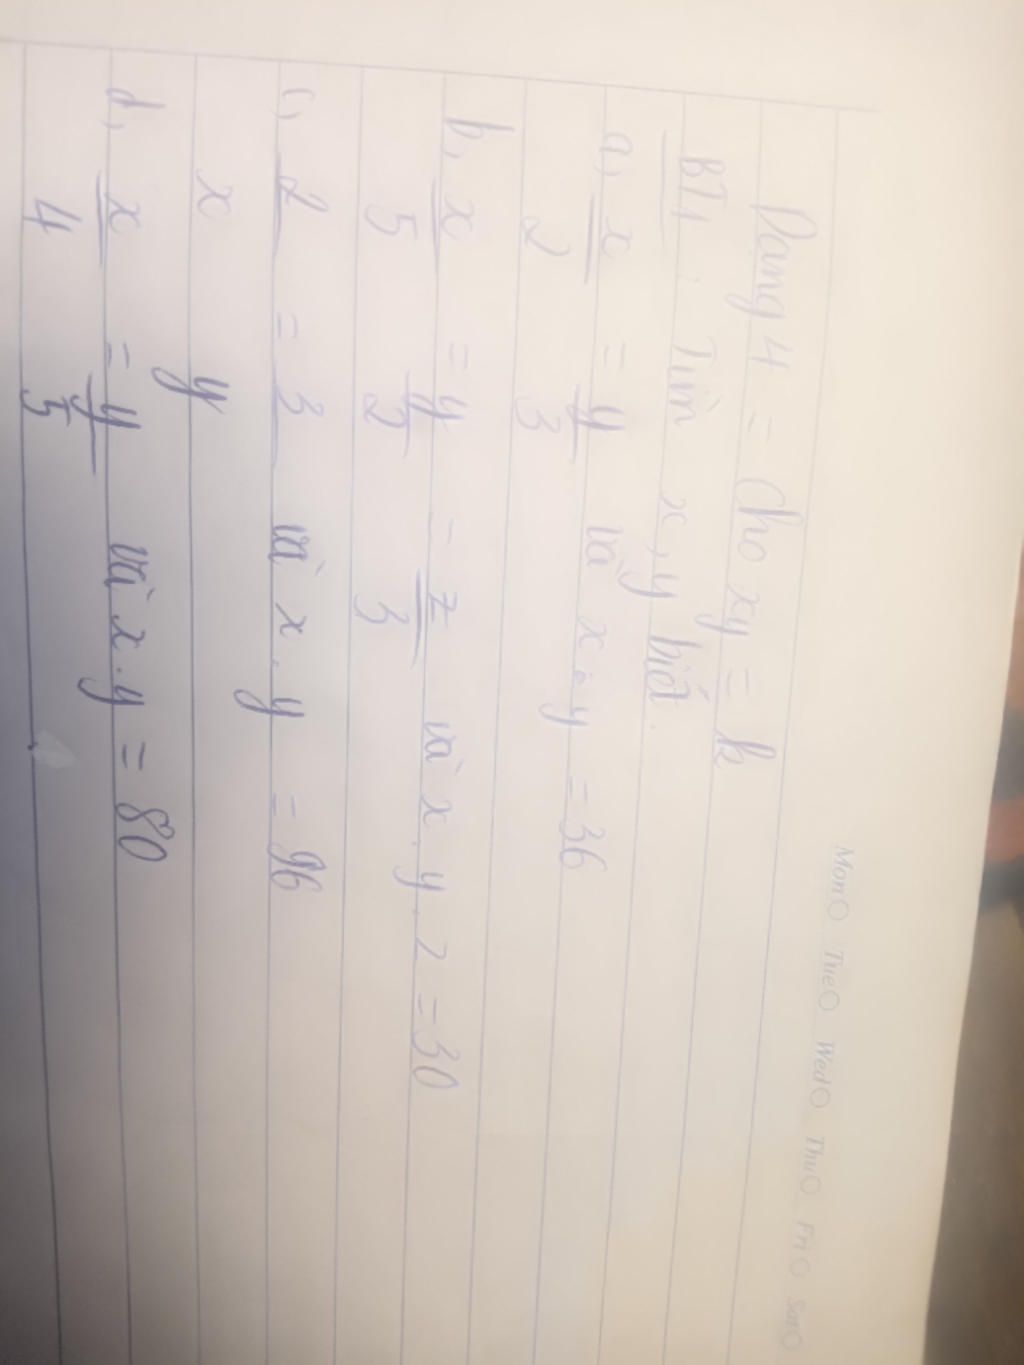 Mon Tue Wed Thu Fri Sat
Dạng 4 = Cho xy = k
BT1 : Tìm x, y biết.
a, x/2 = y/3 và x . y = 36
b, x/5 = y/2 = z/3 và x . y . z = 30
c, 2/x = 3/y và x . y = 96
d, x/4 = y/5 và x . y = 80